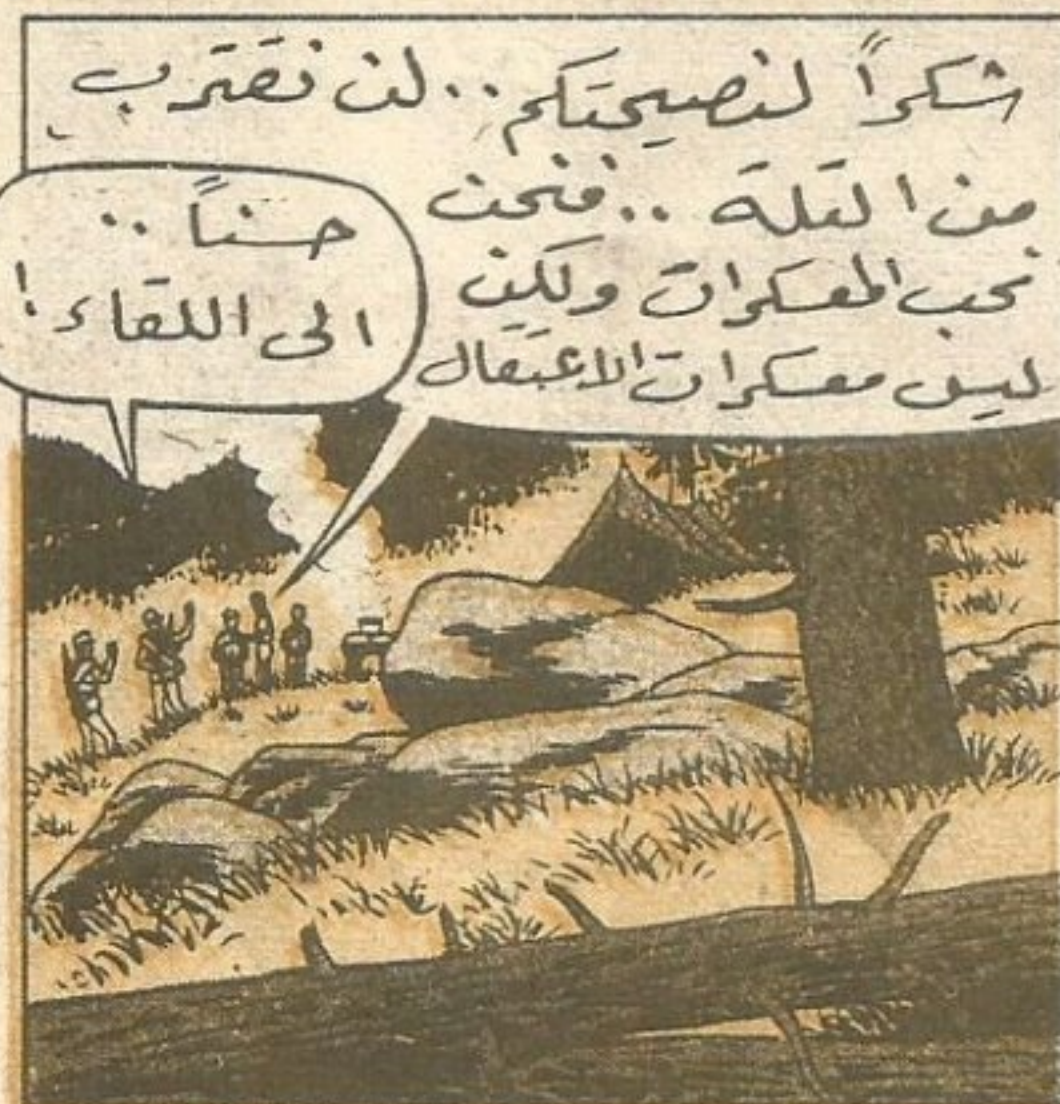 شكراً لنصيحتكم.. لن نقترب
من التلة .. فنحن
نحب المعسكرات ولكن
ليس معسكرات الاعتقال
حسناً ..
الى اللقاء!